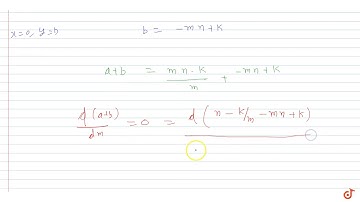 x=0, y=b b = -mn+k
a+b = mn-k/m + -mn+k
d(a+b)/dm = 0 = d(n - k/m - mn+k)